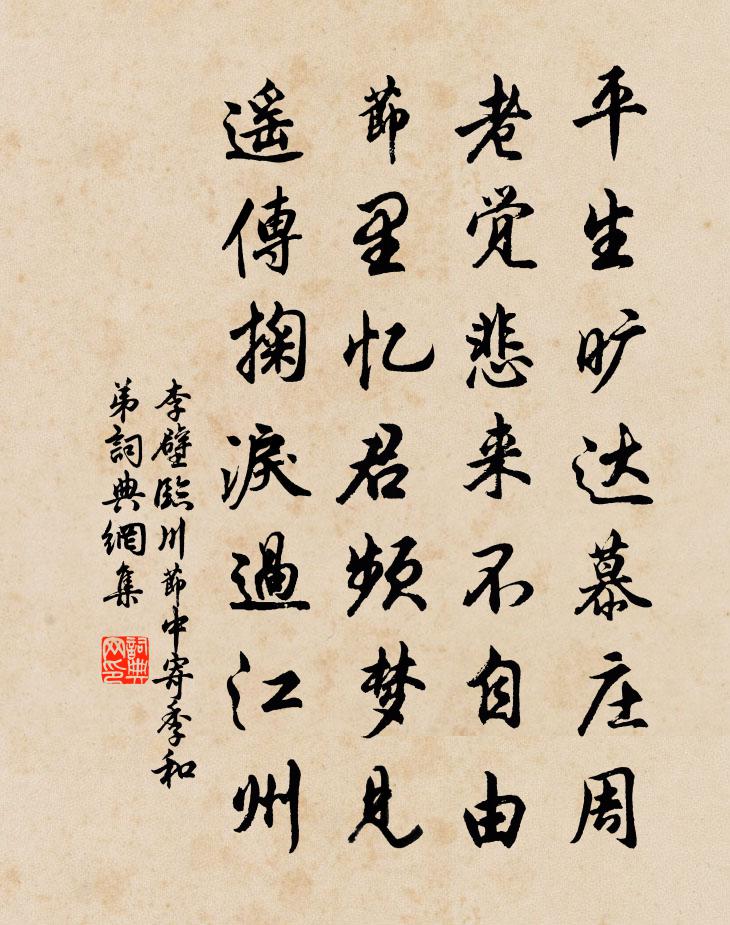 平生旷达慕庄周
老觉悲来不自由
节里忆君频梦见
遥傳掬淚過江州
李壁臨川节中寄季和
弟詞典網集
詞典
网印